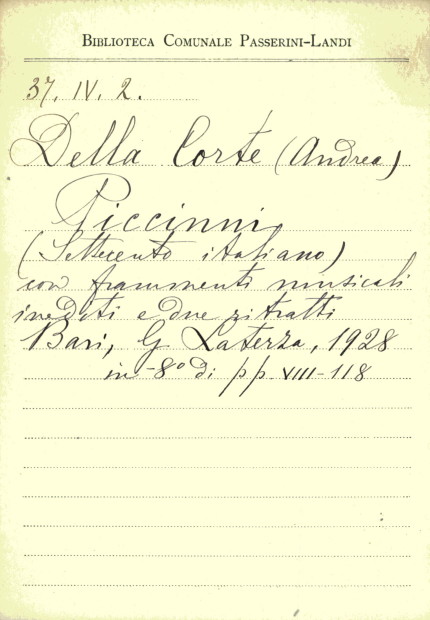 BIBLIOTECA COMUNALE PASSERINI-LANDI
37. IV. 2.
Della Corte (Andrea)
Piccinni
(Settecento italiano)
con frammenti musicali
inediti e due ritratti
Bari, G. Laterza, 1928
in-8° di pp. VIII-118